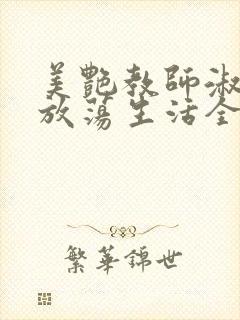 美艷教師淑
放蕩生活全
繁華錦世